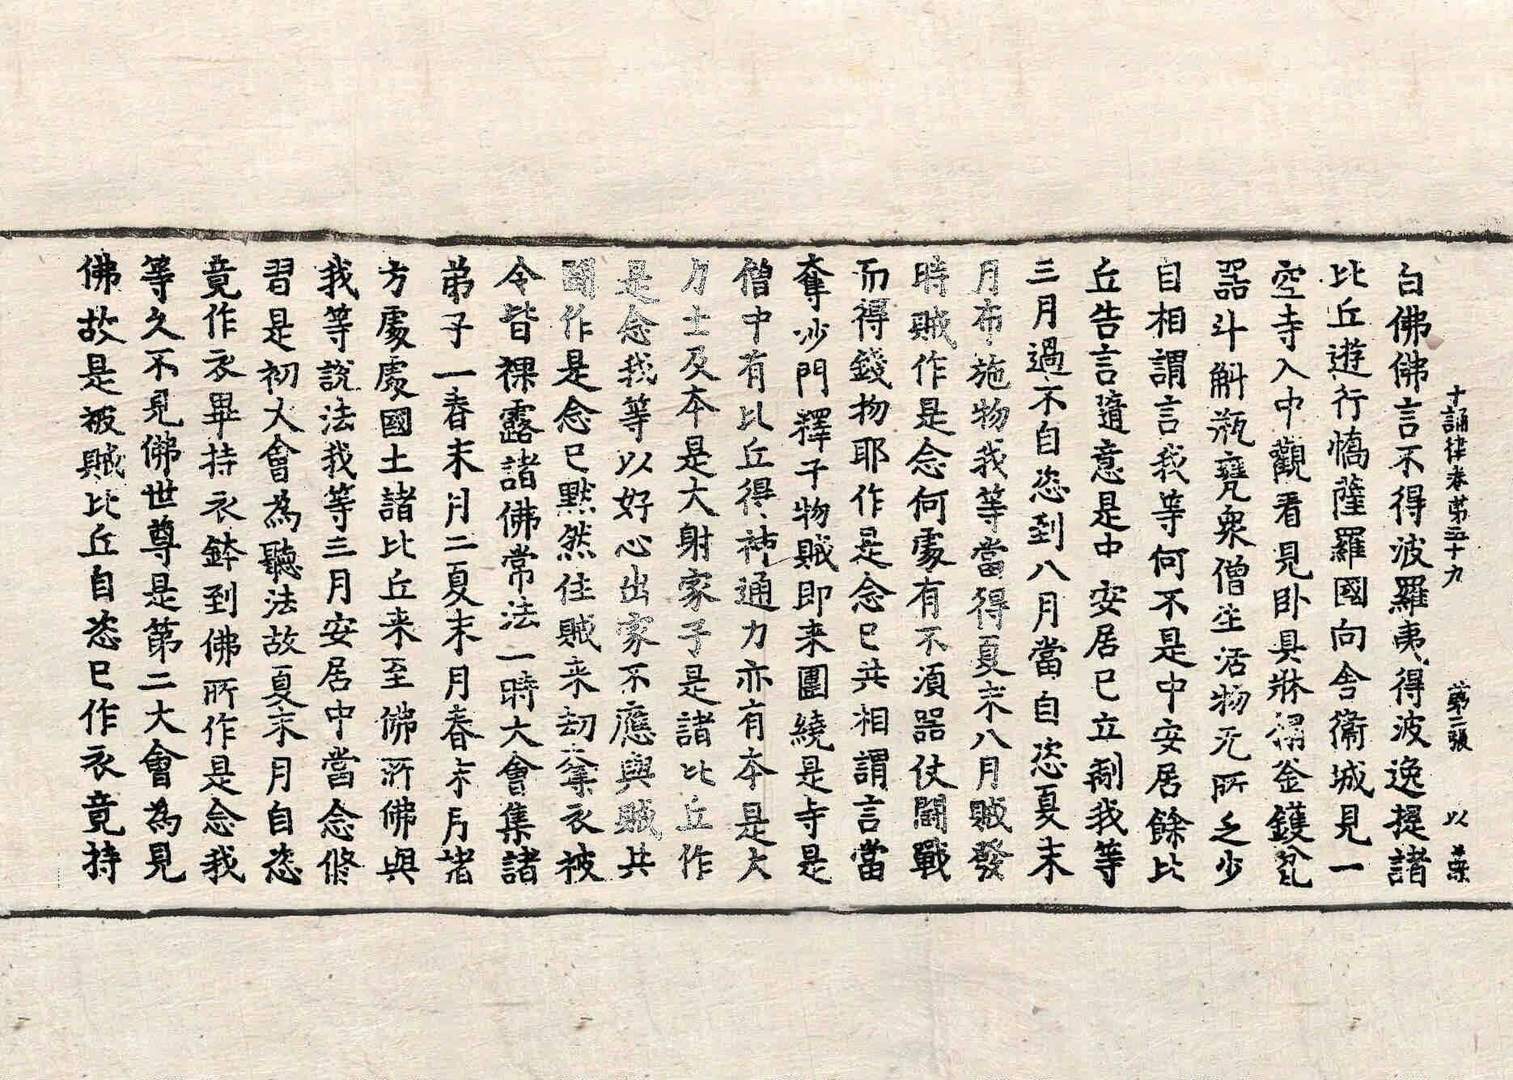 十誦律卷第五十九 第二張 以 葉
白佛佛言不得波羅夷得波逸提諸
比丘遊行憍薩羅國向舍衛城見一
空寺入中觀看見卧具牀褥釜鑊瓫
器斗斛瓶甕衆僧生活物无所乏少
自相謂言我等何不是中安居餘比
丘告言隨意是中安居已立制我等
三月過不自恣到八月當自恣夏末
月布施物我等當得夏末八月賊發
時賊作是念何處有不須器仗鬪戰
而得錢物耶作是念已共相謂言當
奪沙門釋子物賊即来圍繞是寺是
僧中有比丘得神通力亦有本是大
力士及本是大射家子是諸比丘作
是念我等以好心出家不應與賊共
鬪作是念已黙然住賊来劫奪衣被
令皆裸露諸佛常法一時大會集諸
弟子一春末月二夏末月春末月諸
方處處國土諸比丘来至佛所佛與
我等說法我等三月安居中當念修
習是初大會為聽法故夏末月自恣
竟作衣畢持衣鉢到佛所作是念我
等久不見佛世尊是第二大會為見
佛故是被賊比丘自恣已作衣竟持